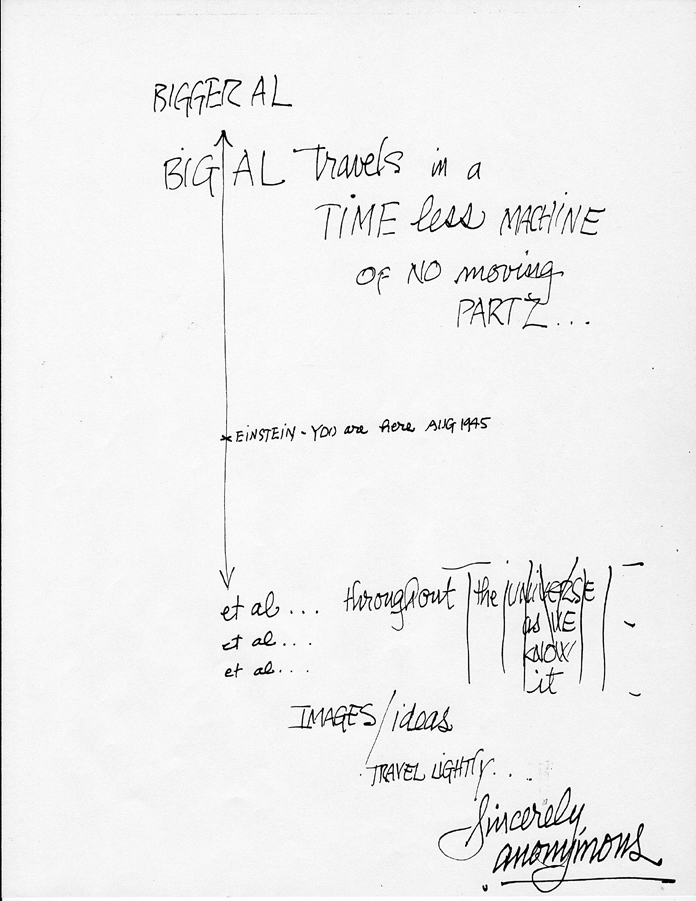 BIGGER AL
BIG AL travels in a
TIME less MACHINE
OF NO moving
PARTZ...
EINSTEIN - YOU are here AUG 1945
et al... throughout the UNIVERSE
et al... as WE
et al... KNOW
it
IMAGES/ideas
TRAVEL LIGHTly...
Sincerely
anonymous